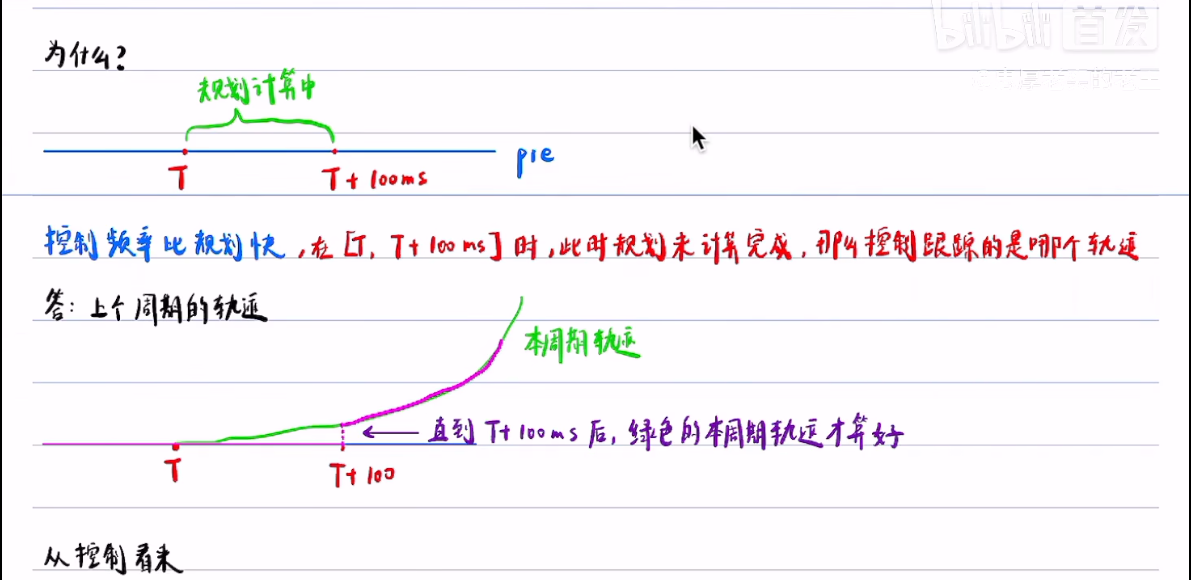 bilibili 首发
为什么?
规划计算中
T
T+100ms
pre
控制频率比规划快,在[T, T+100ms]时,此时规划未计算完成,那么控制跟踪的是哪个轨迹
答:上个周期的轨迹
本周期轨迹
← 直到 T+100ms 后,绿色的本周期轨迹才算好
T
T+100
从控制看来